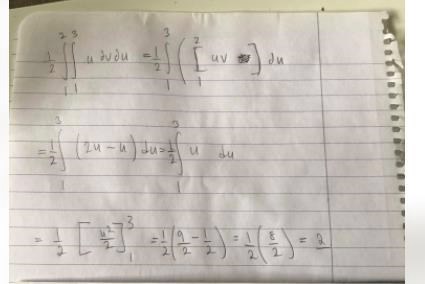 ½ ∫₁² ∫₁³ u dv du = ½ ∫₁³ ( [ uv ]₁² ) du
= ½ ∫₁³ (2u − u) du = ½ ∫₁³ u du
= ½ [ u²/2 ]₁³ = ½ ( 9/2 − 1/2 ) = ½ ( 8/2 ) = 2